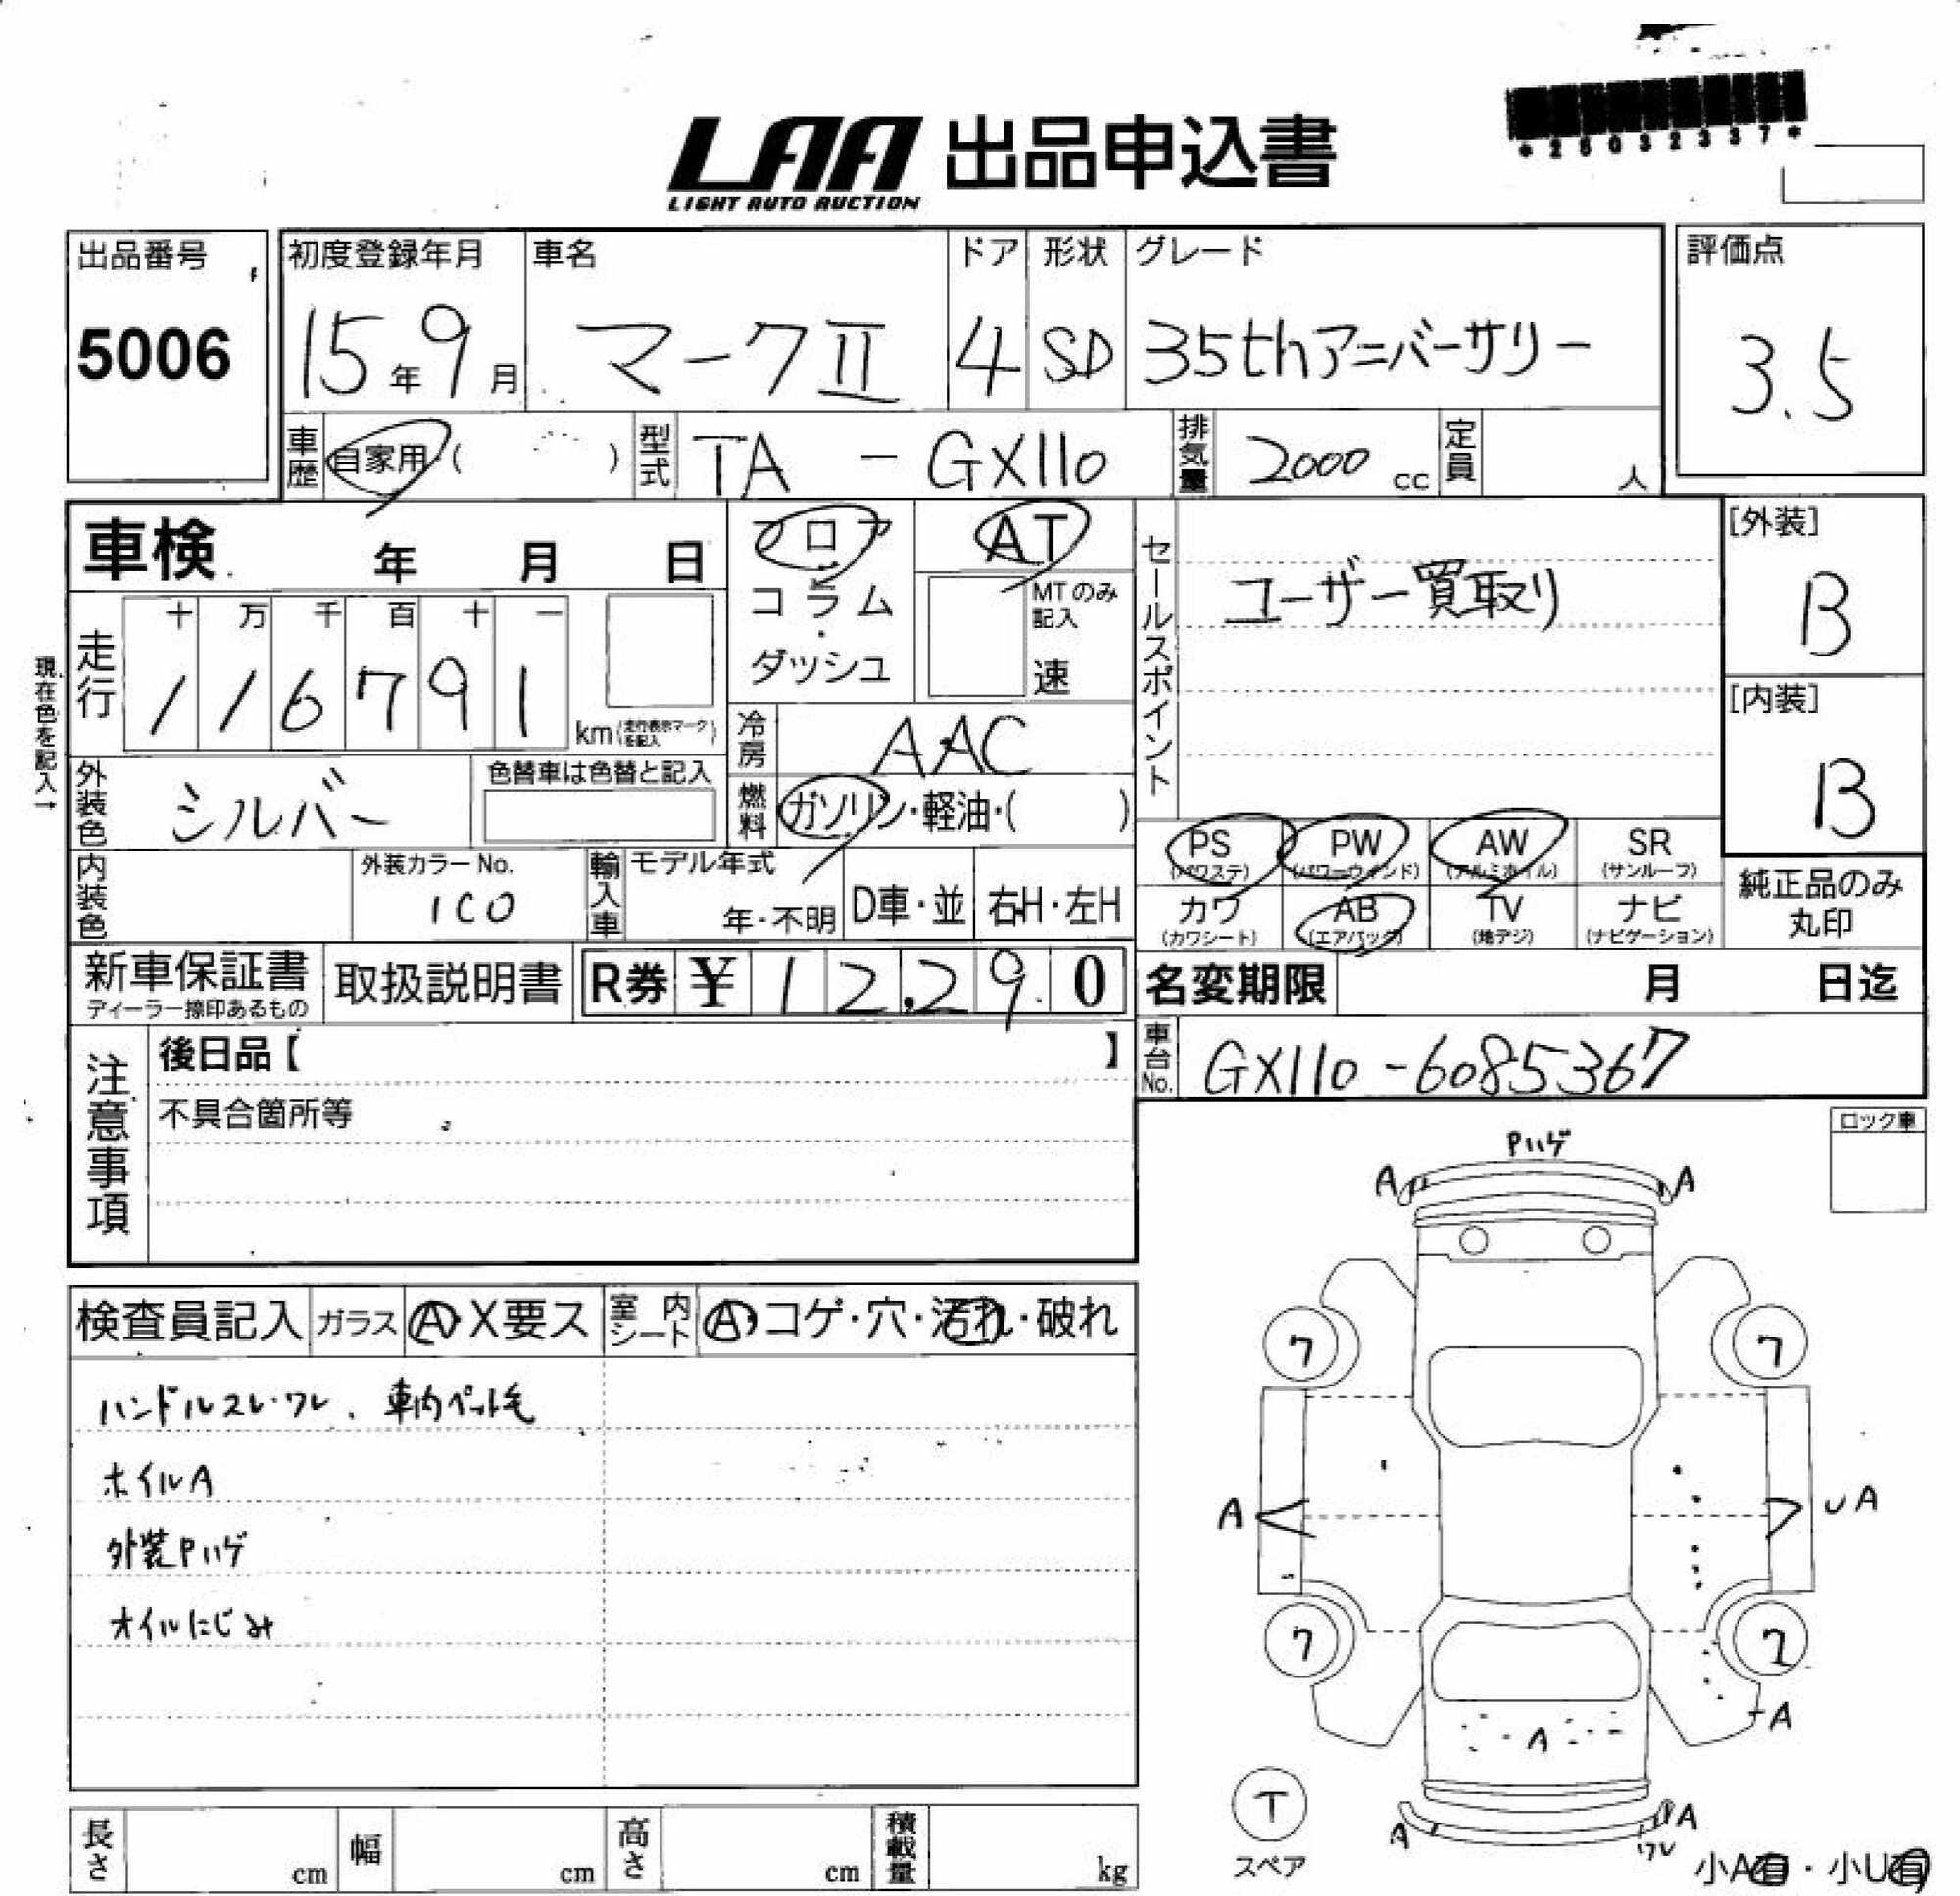 LAA 出品申込書
LIGHT AUTO AUCTION
*26032337*
出品番号
5006
初度登録年月
15年9月
車名
マークⅡ
ドア
4
形状
SD
グレード
35thアニバーサリー
評価点
3.5
車歴 自家用・( )
型式 TA - GX110
排気量 2000 cc
定員 人
車検 年 月 日
フロア・コラム・ダッシュ
AT
MTのみ記入
速
セールスポイント
ユーザー買取り
[外装]
B
[内装]
B
現在色を記入→
走行
十 万 千 百 十 一
1 1 6 7 9 1 km (走行表示マークを記入)
冷房 AAC
外装色 シルバー
色替車は色替と記入
燃料 ガソリン・軽油・( )
PS (パワステ)
PW (パワーウインド)
AW (アルミホイル)
SR (サンルーフ)
カワ (カワシート)
AB (エアバッグ)
TV (地デジ)
ナビ (ナビゲーション)
純正品のみ丸印
内装色
外装カラーNo.
1C0
輸入車
モデル年式
年・不明
D車・並
右H・左H
新車保証書
ディーラー捺印あるもの
取扱説明書
R券 ¥ 12,290
名変期限 月 日迄
車台No. GX110-6085367
注意事項
後日品【 】
不具合箇所等
ロック車
検査員記入
ガラス A・X要ス
室内シート A・コゲ・穴・汚れ・破れ
ハンドルスレ・ワレ、車内ペット毛
ホイルA
外装Pハゲ
オイルにじみ
Pハゲ
A A
7 7
A UA
7 7
A
A
T
スペア
A A
ワレ
小A有・小U有
長さ cm
幅 cm
高さ cm
積載量 kg